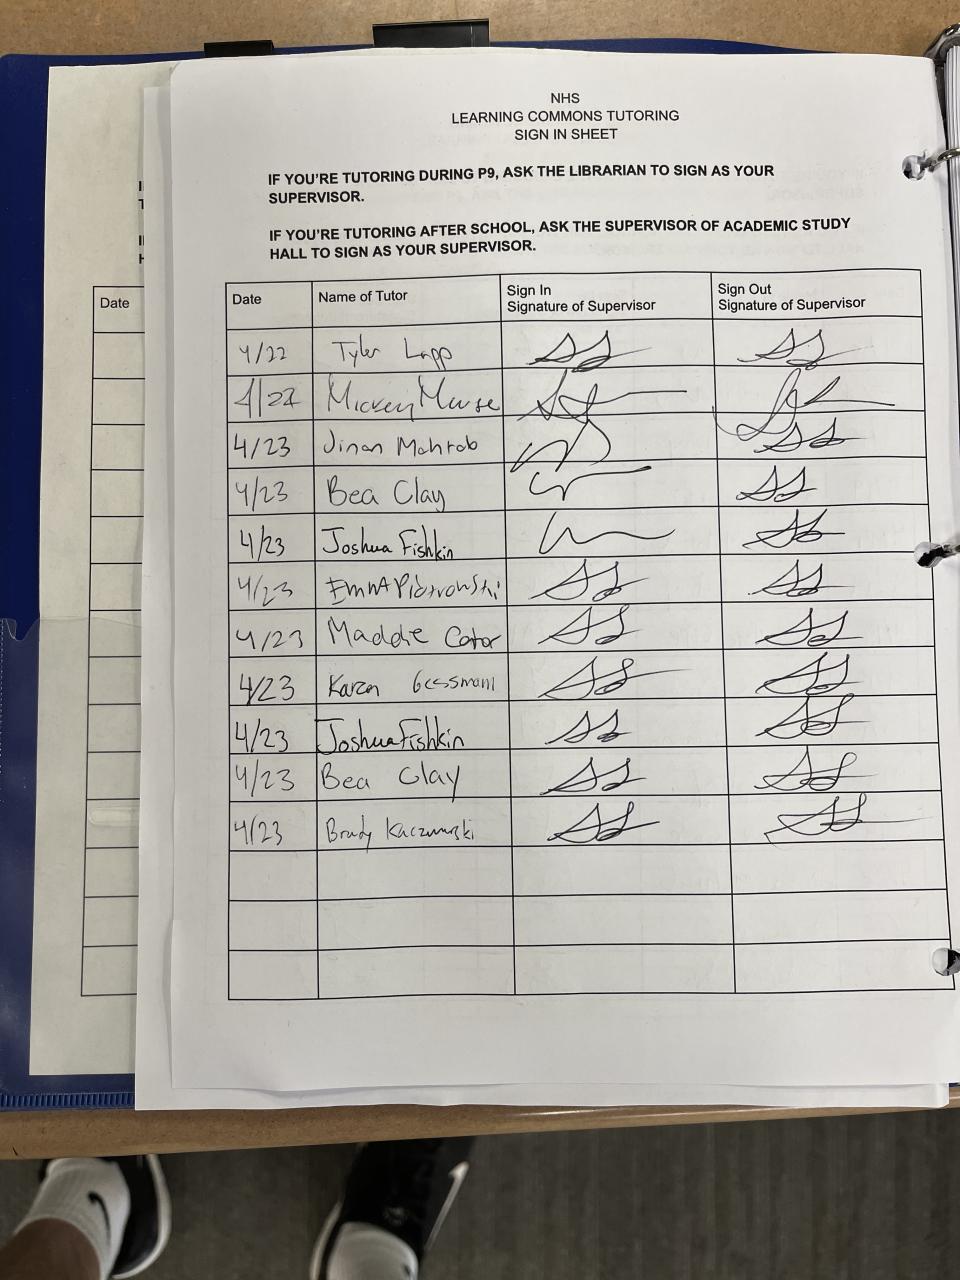 NHS
LEARNING COMMONS TUTORING
SIGN IN SHEET
IF YOU'RE TUTORING DURING P9, ASK THE LIBRARIAN TO SIGN AS YOUR
SUPERVISOR.
IF YOU'RE TUTORING AFTER SCHOOL, ASK THE SUPERVISOR OF ACADEMIC STUDY
HALL TO SIGN AS YOUR SUPERVISOR.
Date
Date Name of Tutor Sign In Signature of Supervisor Sign Out Signature of Supervisor
4/22 Tyler Lapp
4/22 Mickey Mouse
4/23 Jinan Mahtab
4/23 Bea Clay
4/23 Joshua Fishkin
4/23 Emma Piotrowski
4/23 Maddie Cator
4/23 Karen Gessmann
4/23 Joshua Fishkin
4/23 Bea Clay
4/23 Brady Kaczmarski